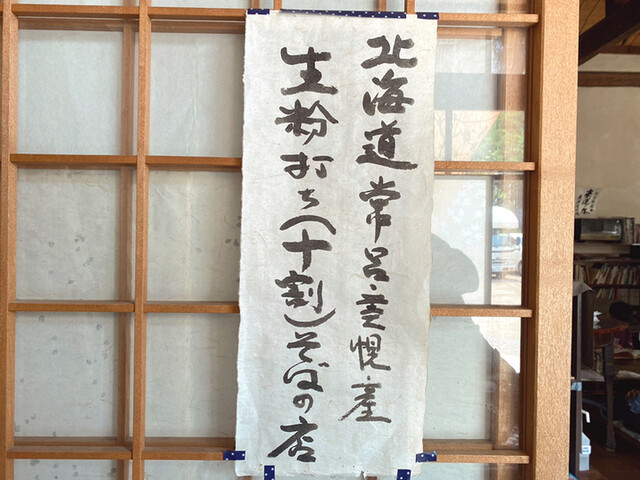 北海道常呂・美幌産
生粉打ち(十割)そばの店